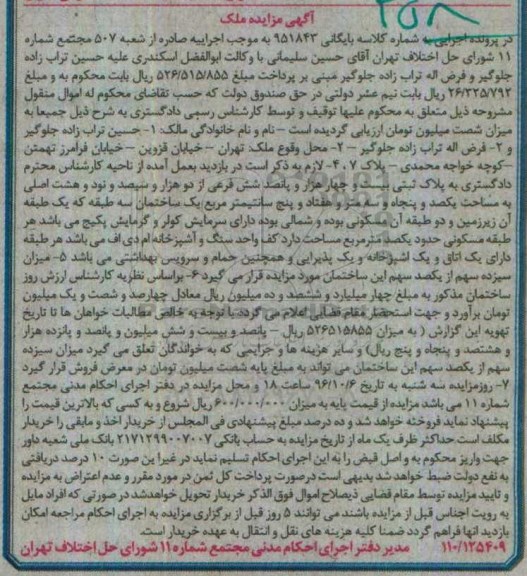 ۳۵۸
آگهی مزایده ملک
در پرونده اجرایی به شماره کلاسه بایگانی ۹۵۱۸۴۳ به موجب اجراییه صادره از شعبه ۵۰۷ مجتمع شماره
۱۱ شورای حل اختلاف تهران آقای حسین سلیمانی با وکالت ابوالفضل اسکندری علیه حسین تراب زاده
جلوگیر و فرض اله تراب زاده جلوگیر مبنی بر پرداخت مبلغ ۵۲۶/۵۱۵/۸۵۵ ریال بابت محکوم به و مبلغ
۲۶/۳۲۵/۷۹۲ ریال بابت نیم عشر دولتی در حق صندوق دولت که حسب تقاضای محکوم له اموال منقول
مشروحه ذیل متعلق به محکوم علیها توقیف و توسط کارشناس رسمی دادگستری به شرح ذیل جمیعا به
میزان شصت میلیون تومان ارزیابی گردیده است – نام و نام خانوادگی مالک: ۱- حسین تراب زاده جلوگیر
و ۲- فرض اله تراب زاده جلوگیر – ۲- محل وقوع ملک: تهران – خیابان قزوین – خیابان فرامرز تهمتن
–کوچه خواجه محمدی – پلاک ۷ ۴۰- لازم به ذکر است در بازدید بعمل آمده از ناحیه کارشناس محترم
دادگستری به پلاک ثبتی بیست و چهار هزار و پانصد شش فرعی از دو هزار و سیصد و نود و هشت اصلی
به مساحت یکصد و پنجاه و سه ممیز هفتاد و پنج سانتیمتر مربع یک ساختمان سه طبقه که یک طبقه
آن زیرزمین و دو طبقه آن مسکونی بوده و شمالی بوده دارای سرمایش کولر و گرمایش پکیج می باشد هر
طبقه مسکونی حدود یکصد مترمربع مساحت دارد کف واحد سنگ و آشپزخانه ام دی اف می باشد هر طبقه
دارای یک اتاق و یک آشپزخانه و یک پذیرایی و همچنین حمام و سرویس بهداشتی می باشد ۵- میزان
سیزده سهم از یکصد سهم این ساختمان مورد مزایده قرار می گیرد ۶- براساس نظریه کارشناس ارزش روز
ساختمان مذکور به مبلغ چهار میلیارد و ششصد و ده میلیون ریال معادل چهارصد و شصت و یک میلیون
تومان برآورد و جهت استحضار مقام قضایی اعلام می گردد با توجه به خالص مطالبات خواهان ها تا تاریخ
تهویه این گزارش ( به میزان ۵۲۶۵۱۵۸۵۵ ریال – پانصد و بیست و شش میلیون و پانصد و پانزده هزار
و هشتصد و پنجاه و پنج ریال) و سایر هزینه ها و جرایمی که به خواندگان تعلق می گیرد میزان سیزده
سهم از یکصد سهم این ساختمان می تواند به مبلغ پایه شصت میلیون تومان در معرض فروش قرار گیرد
۷- روز مزایده سه شنبه به تاریخ ۹۶/۱۰/۶ ساعت ۱۸ و محل مزایده در دفتر اجرای احکام مدنی مجتمع
شماره ۱۱ می باشد مزایده از قیمت پایه به میزان ۶۰۰/۰۰۰/۰۰۰ ریال شروع و به کسی که بالاترین قیمت را
پیشنهاد نماید فروخته خواهد شد و ده درصد مبلغ پیشنهادی فی المجلس از خریدار اخذ و مابقی را خریدار
مکلف است حداکثر ظرف یک ماه از تاریخ مزایده به حساب بانکی ۲۱۷۱۲۹۹۰۰۷۰۰۷ بانک ملی شعبه داور
جهت واریز محکوم به و اصل قبض را به این اجرای احکام تسلیم نماید در غیر این صورت ۱۰ درصد دریافتی
به نفع دولت ضبط خواهد شد بدیهی است در صورت پرداخت کل ثمن در مورد مقرر و عدم اعتراض به مزایده
و تایید مزایده توسط مقام قضایی ذیصلاح اموال فوق الذکر خریدار تحویل خواهد شد در صورتی که افراد مایل
به رویت اجناس قبل از مزایده باشند می توانند ۵ روز قبل از برگزاری مزایده به اجرای احکام مراجعه امکان
بازدید آنها فراهم گردد ضمنا کلیه هزینه های نقل و انتقال به عهده خریدار است.
۱۱۰/۱۲۵۴۰۹ مدیر دفتر اجرای احکام مدنی مجتمع شماره ۱۱ شورای حل اختلاف تهران